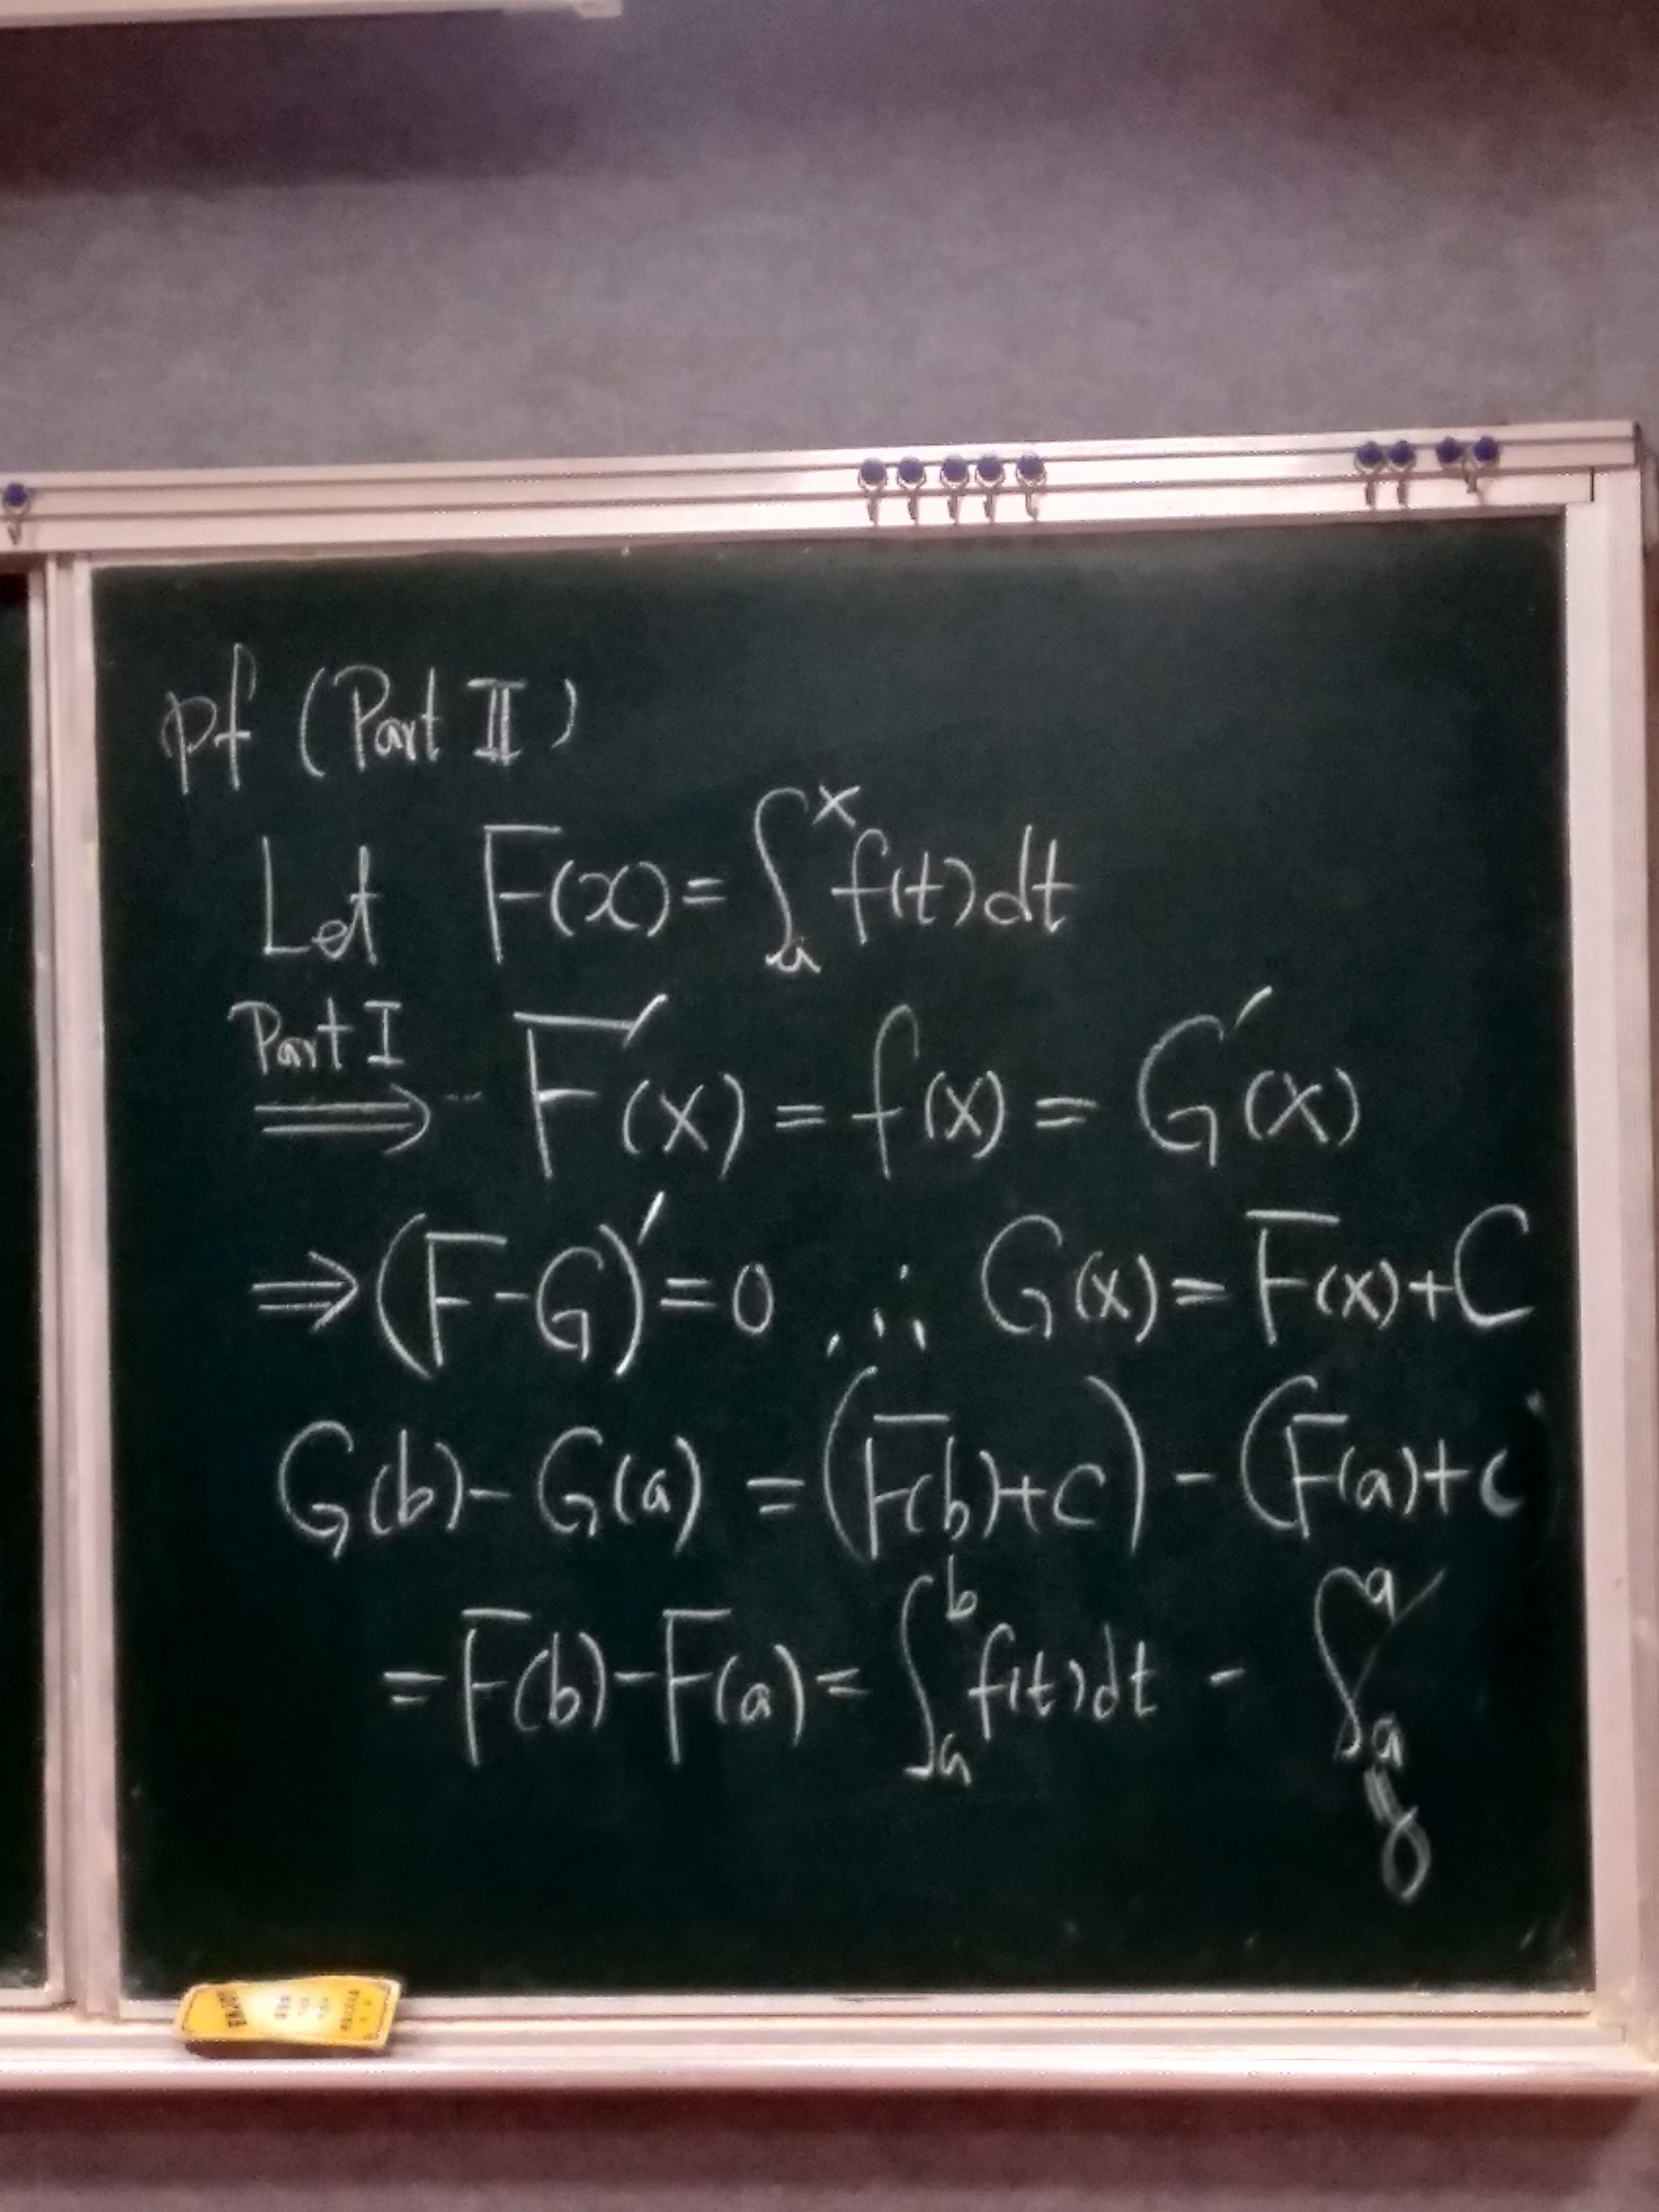 pf (Part II)
Let F(x) = ∫_a^x f(t) dt
Part I
⟹ F′(x) = f(x) = G′(x)
⟹ (F-G)′ = 0 ∴ G(x) = F(x) + C
G(b) - G(a) = (F(b)+C) - (F(a)+C)
= F(b) - F(a) = ∫_a^b f(t) dt - ∫_a^a
= 0